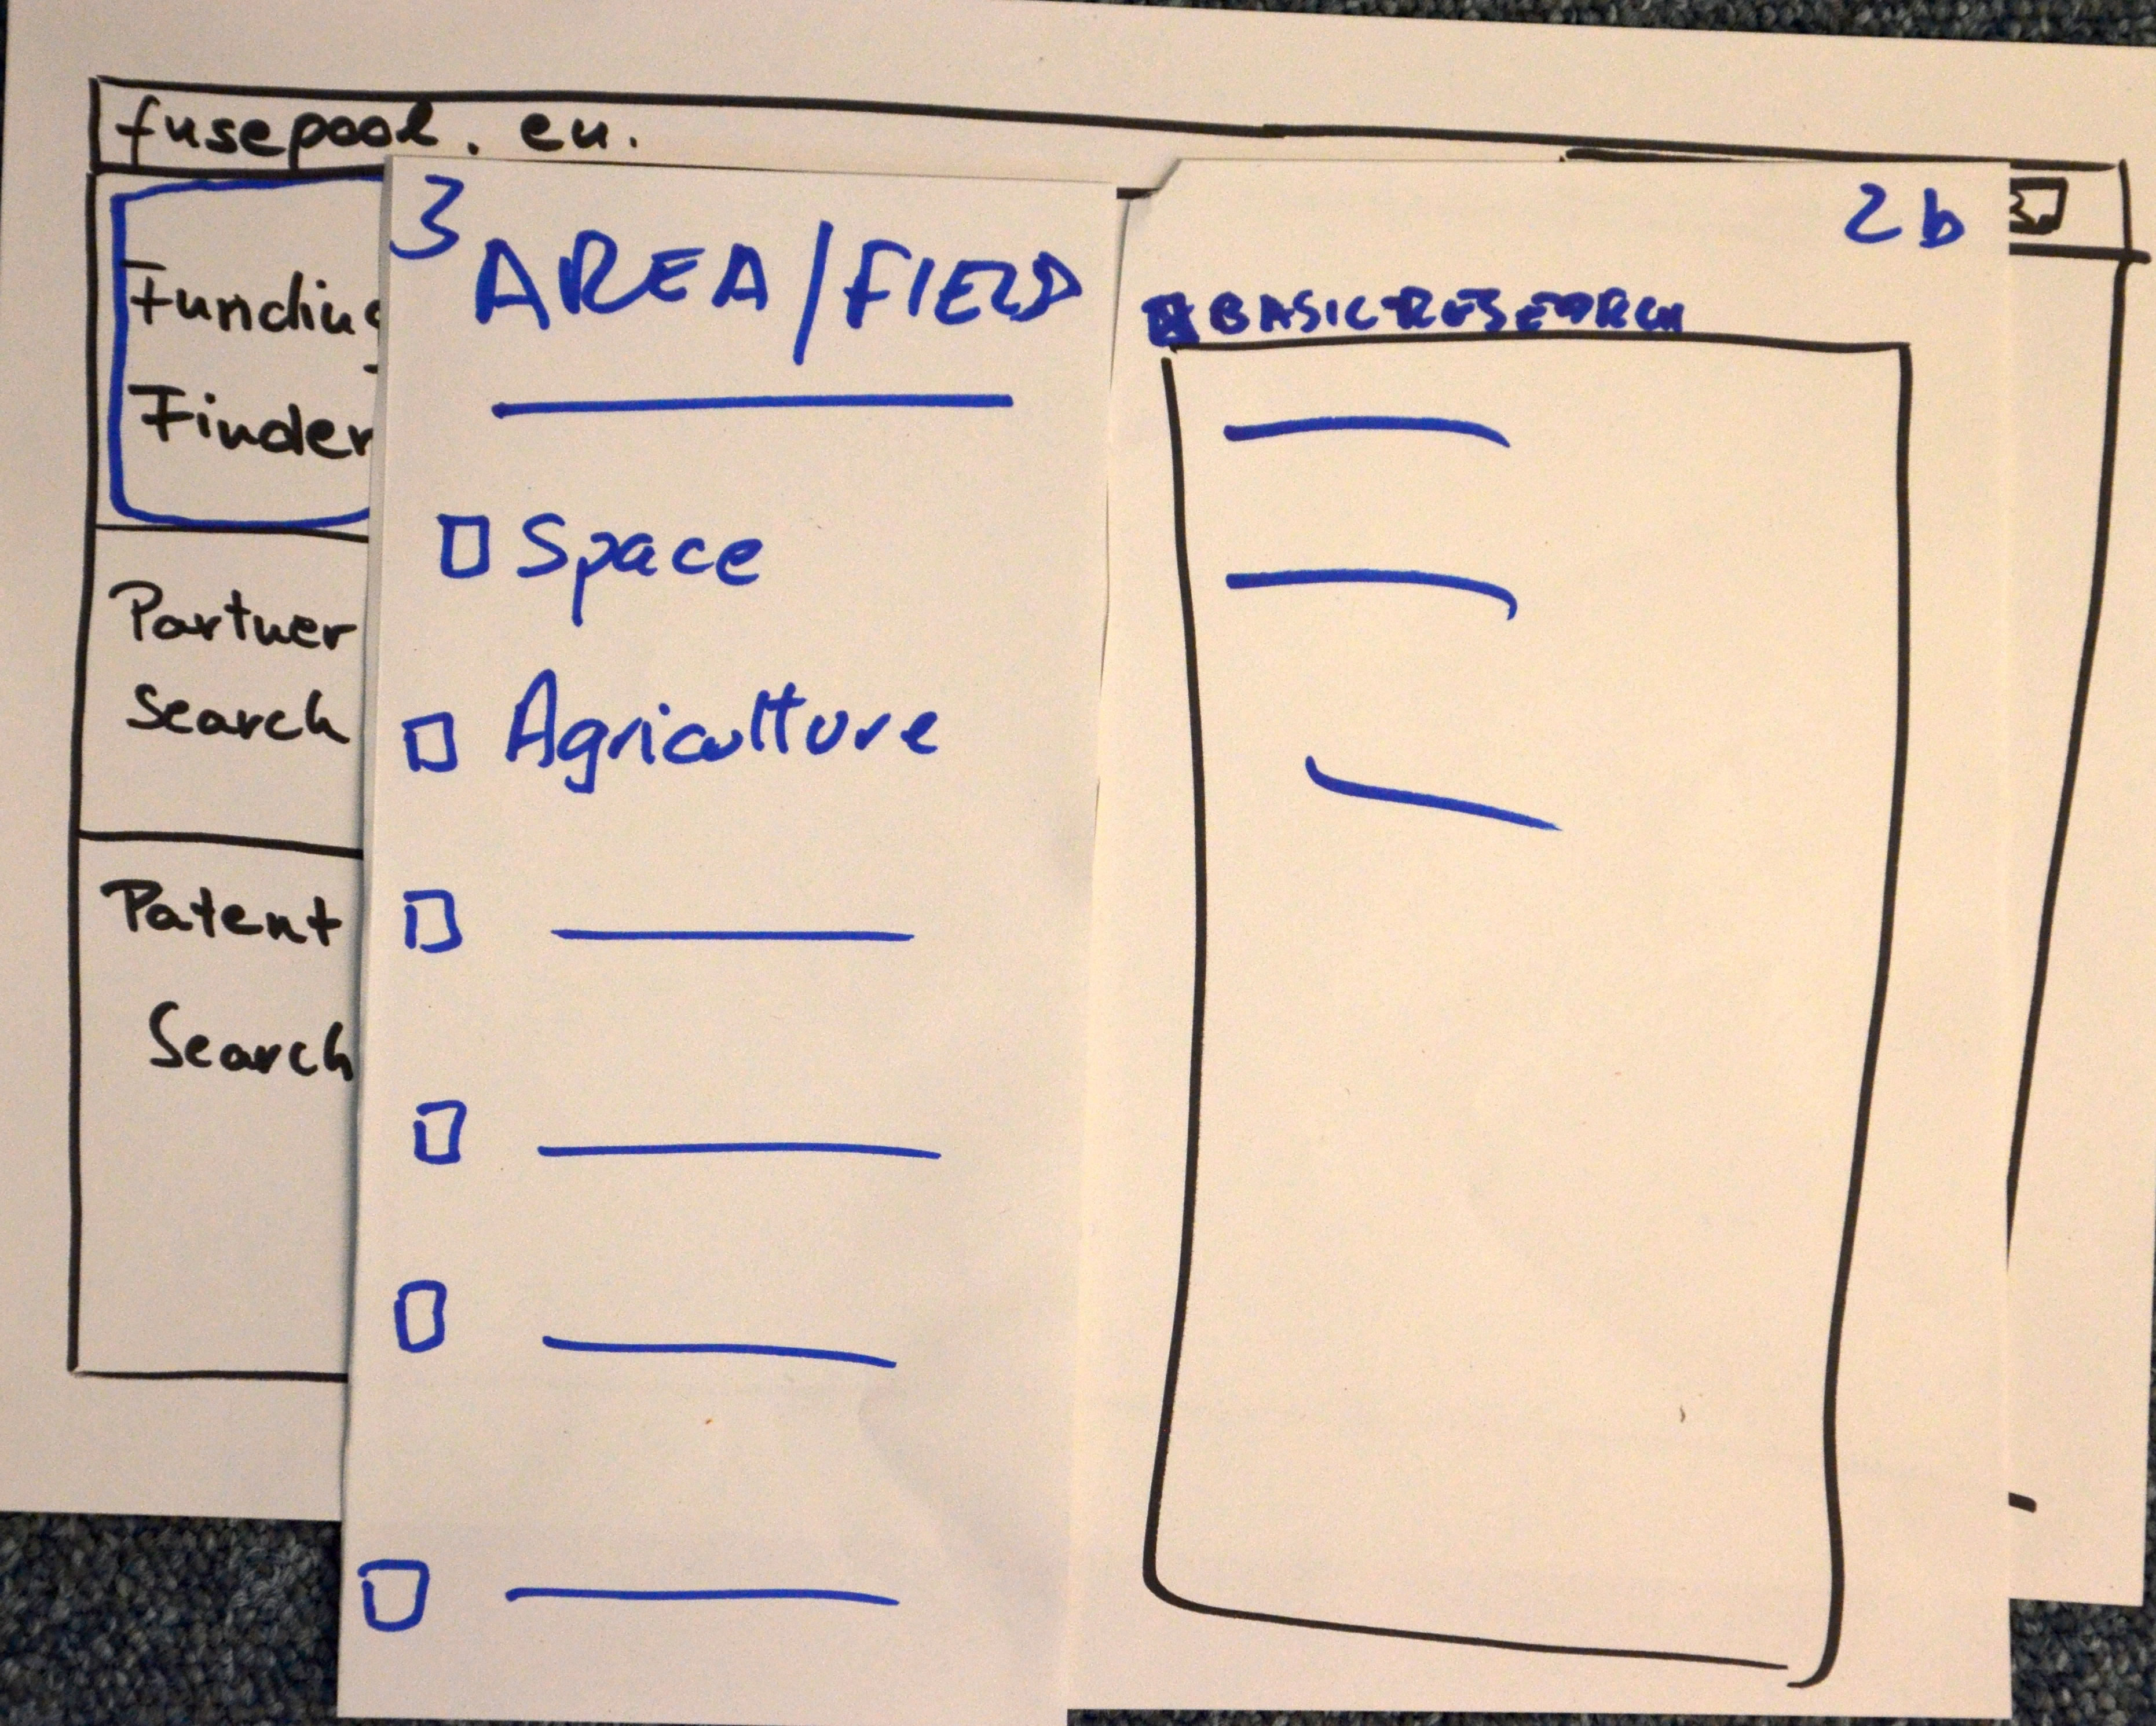 fusepool.eu.
Funding
Finder
Partner
Search
Patent
Search
3
AREA/FIELD
Space
Agriculture
2b
BASIC RESEARCH